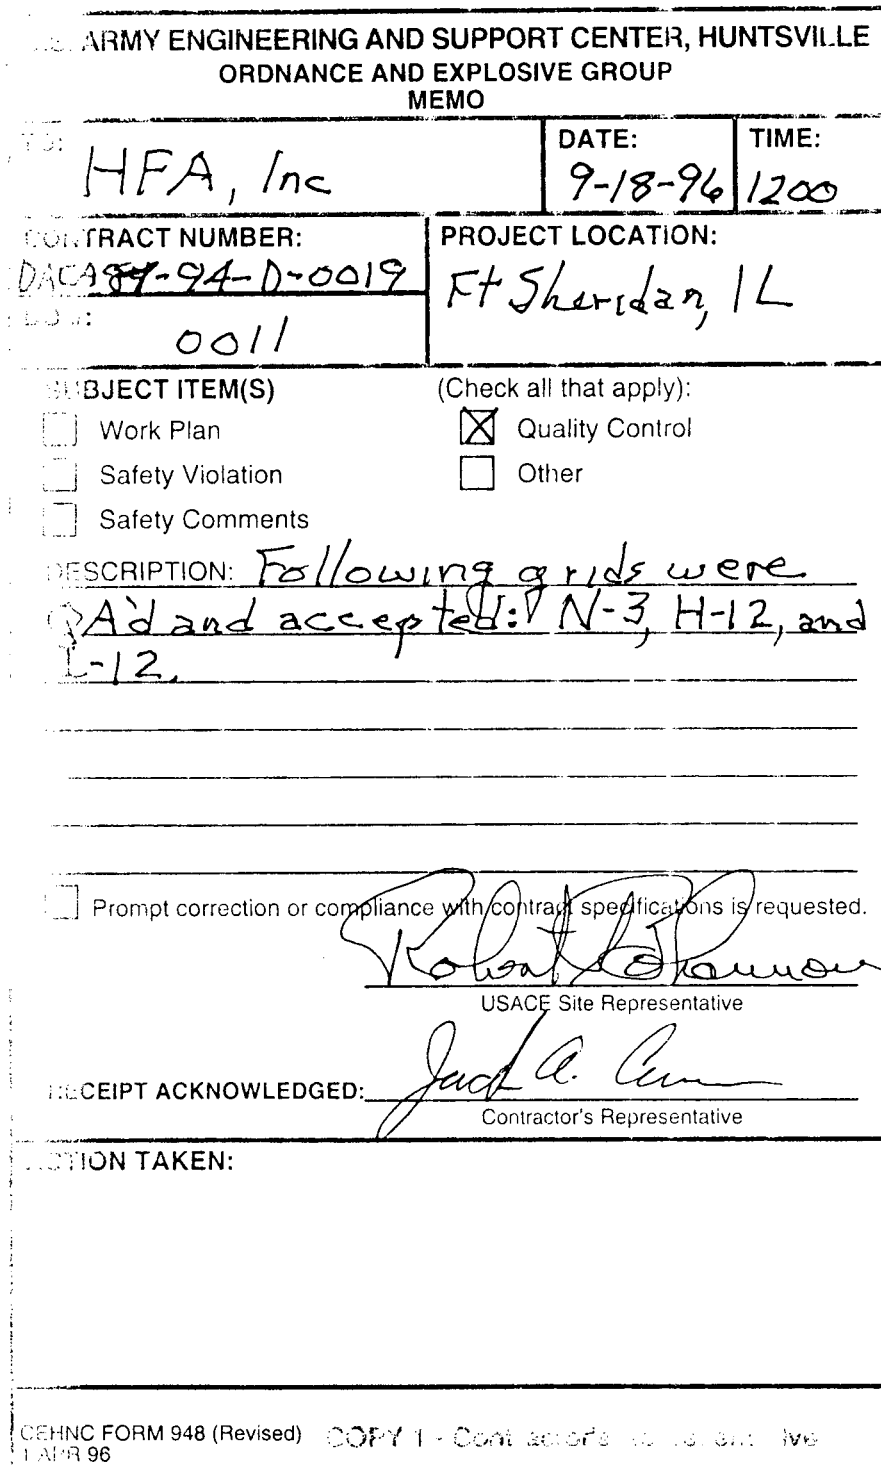 ARMY ENGINEERING AND SUPPORT CENTER, HUNTSVILLE
ORDNANCE AND EXPLOSIVE GROUP
MEMO
TO: DATE: TIME:
HFA, Inc 9-18-96 1200
CONTRACT NUMBER: PROJECT LOCATION:
DACA87-94-D-0019 Ft Sheridan, IL
0011
SUBJECT ITEM(S) (Check all that apply):
Work Plan Quality Control
Safety Violation Other
Safety Comments
DESCRIPTION: Following grids were
QA'd and accepted: N-3, H-12, and
L-12.
Prompt correction or compliance with contract specifications is requested.
Robert
USACE Site Representative
RECEIPT ACKNOWLEDGED: Jack A.
Contractor's Representative
ACTION TAKEN:
CEHNC FORM 948 (Revised) COPY 1 -
1 APR 96